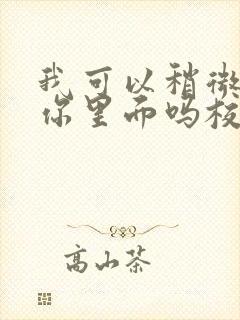 我可以稍微
你里面吗校
高山茶